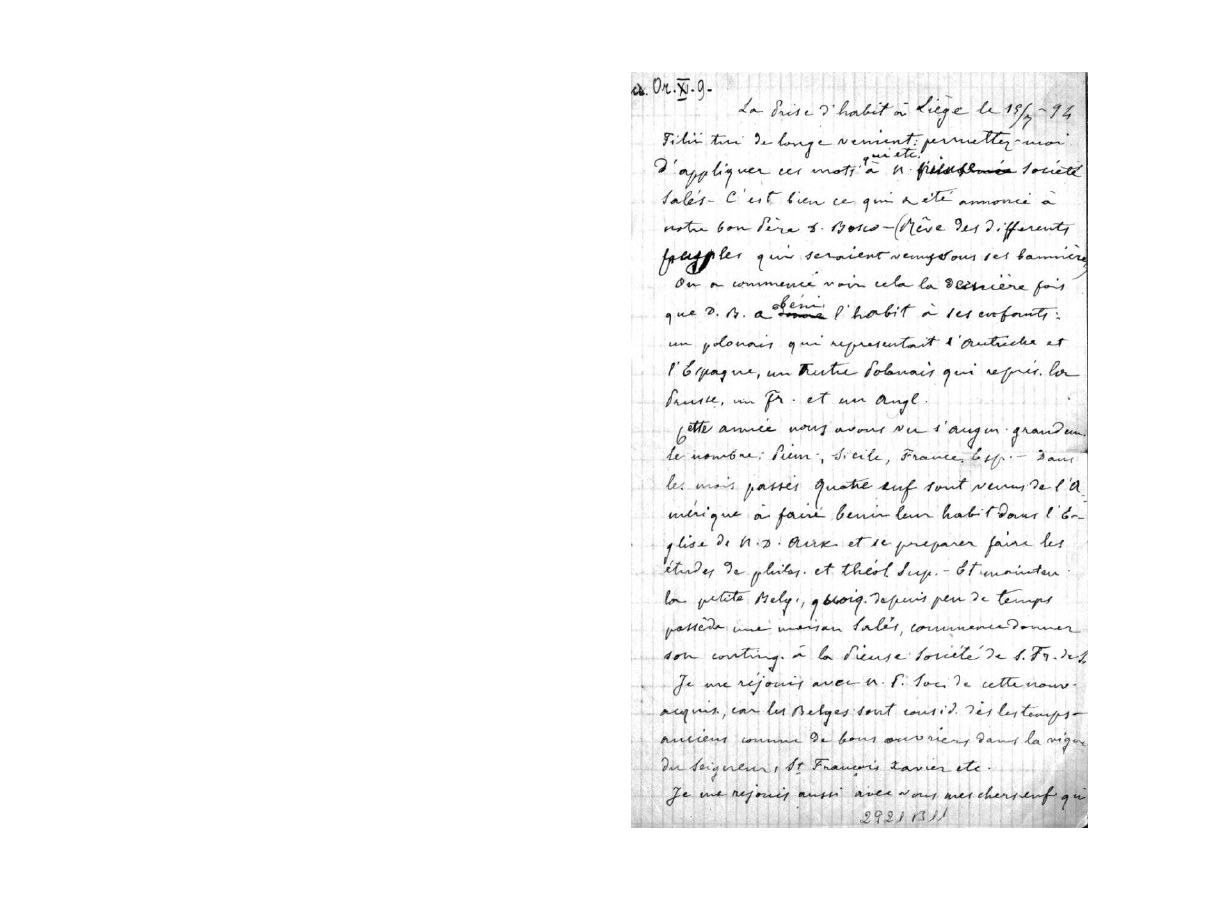 Or. XI. 9-
La Prise d'habit à Liège le 15/7 - 94
Filii tui de longe venient: permettez-moi
qui etc.
d'appliquer ces mots à N. Société
Salés- C'est bien ce qui a été annoncé à
notre bon Père D. Bosco - (Rêve des differents
peuples qui seraient venus sous ses bannières)
On a commencé voir cela la dernière fois
béni
que D. B. a l'habit à ses enfants:
un polonais qui representait l'Autriche et
l'Espagne, un autre Polonais qui reprès. la
Prusse, un Fr. et un Angl.
Cette année nous avons vu s'augm. grandem.
le nombre: Piem-, Sicile, France, Esp. - Dans
les mois passés quatre enf sont venus de l'A-
mérique à faire benir leur habit dans l'E-
glise de N. D. Aux et se preparer faire les
études de philos. et théol Sup. - Et mainten.
la petite Belg., quoiq. depuis peu de temps
possède une maison Salés, commence donner
son conting. à la Pieuse Société de S. Fr. de S.
Je me réjouis avec N. P. Soc. de cette nouv-
acquis, car les Belges sont consid. dès les temps-
anciens comme de bons ouvriers dans la vigne
du Seigneur, St François Xavier etc.
Je me rejouis aussi avec vous mes chers enf qui
2921 B 11